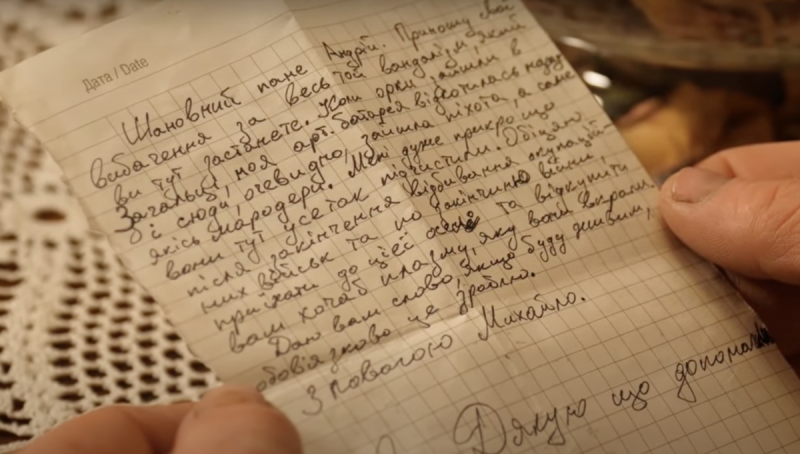 Дата / Date
Шановний пане Андрій. Приношу свої
вибачення за весь той вандалізм, який
ви тут застанете. Коли орки зайшли в
Загальці, моя арт. батарея відкотилась назад
і сюди, очевидно, зайшла піхота, а саме
якісь мародери. Мені дуже прикро що
вони тут усе так почистили. Обіцяю,
після закінчення відбивання окупацій-
них військ та по закінченню війни,
приїхати до цієї оселі та відкупити
вам хочаб плазму, яку вони вкрали.
Даю вам слово, якщо буду живим,
обов'язково це зроблю.
З повагою Михайло.
Дякую що